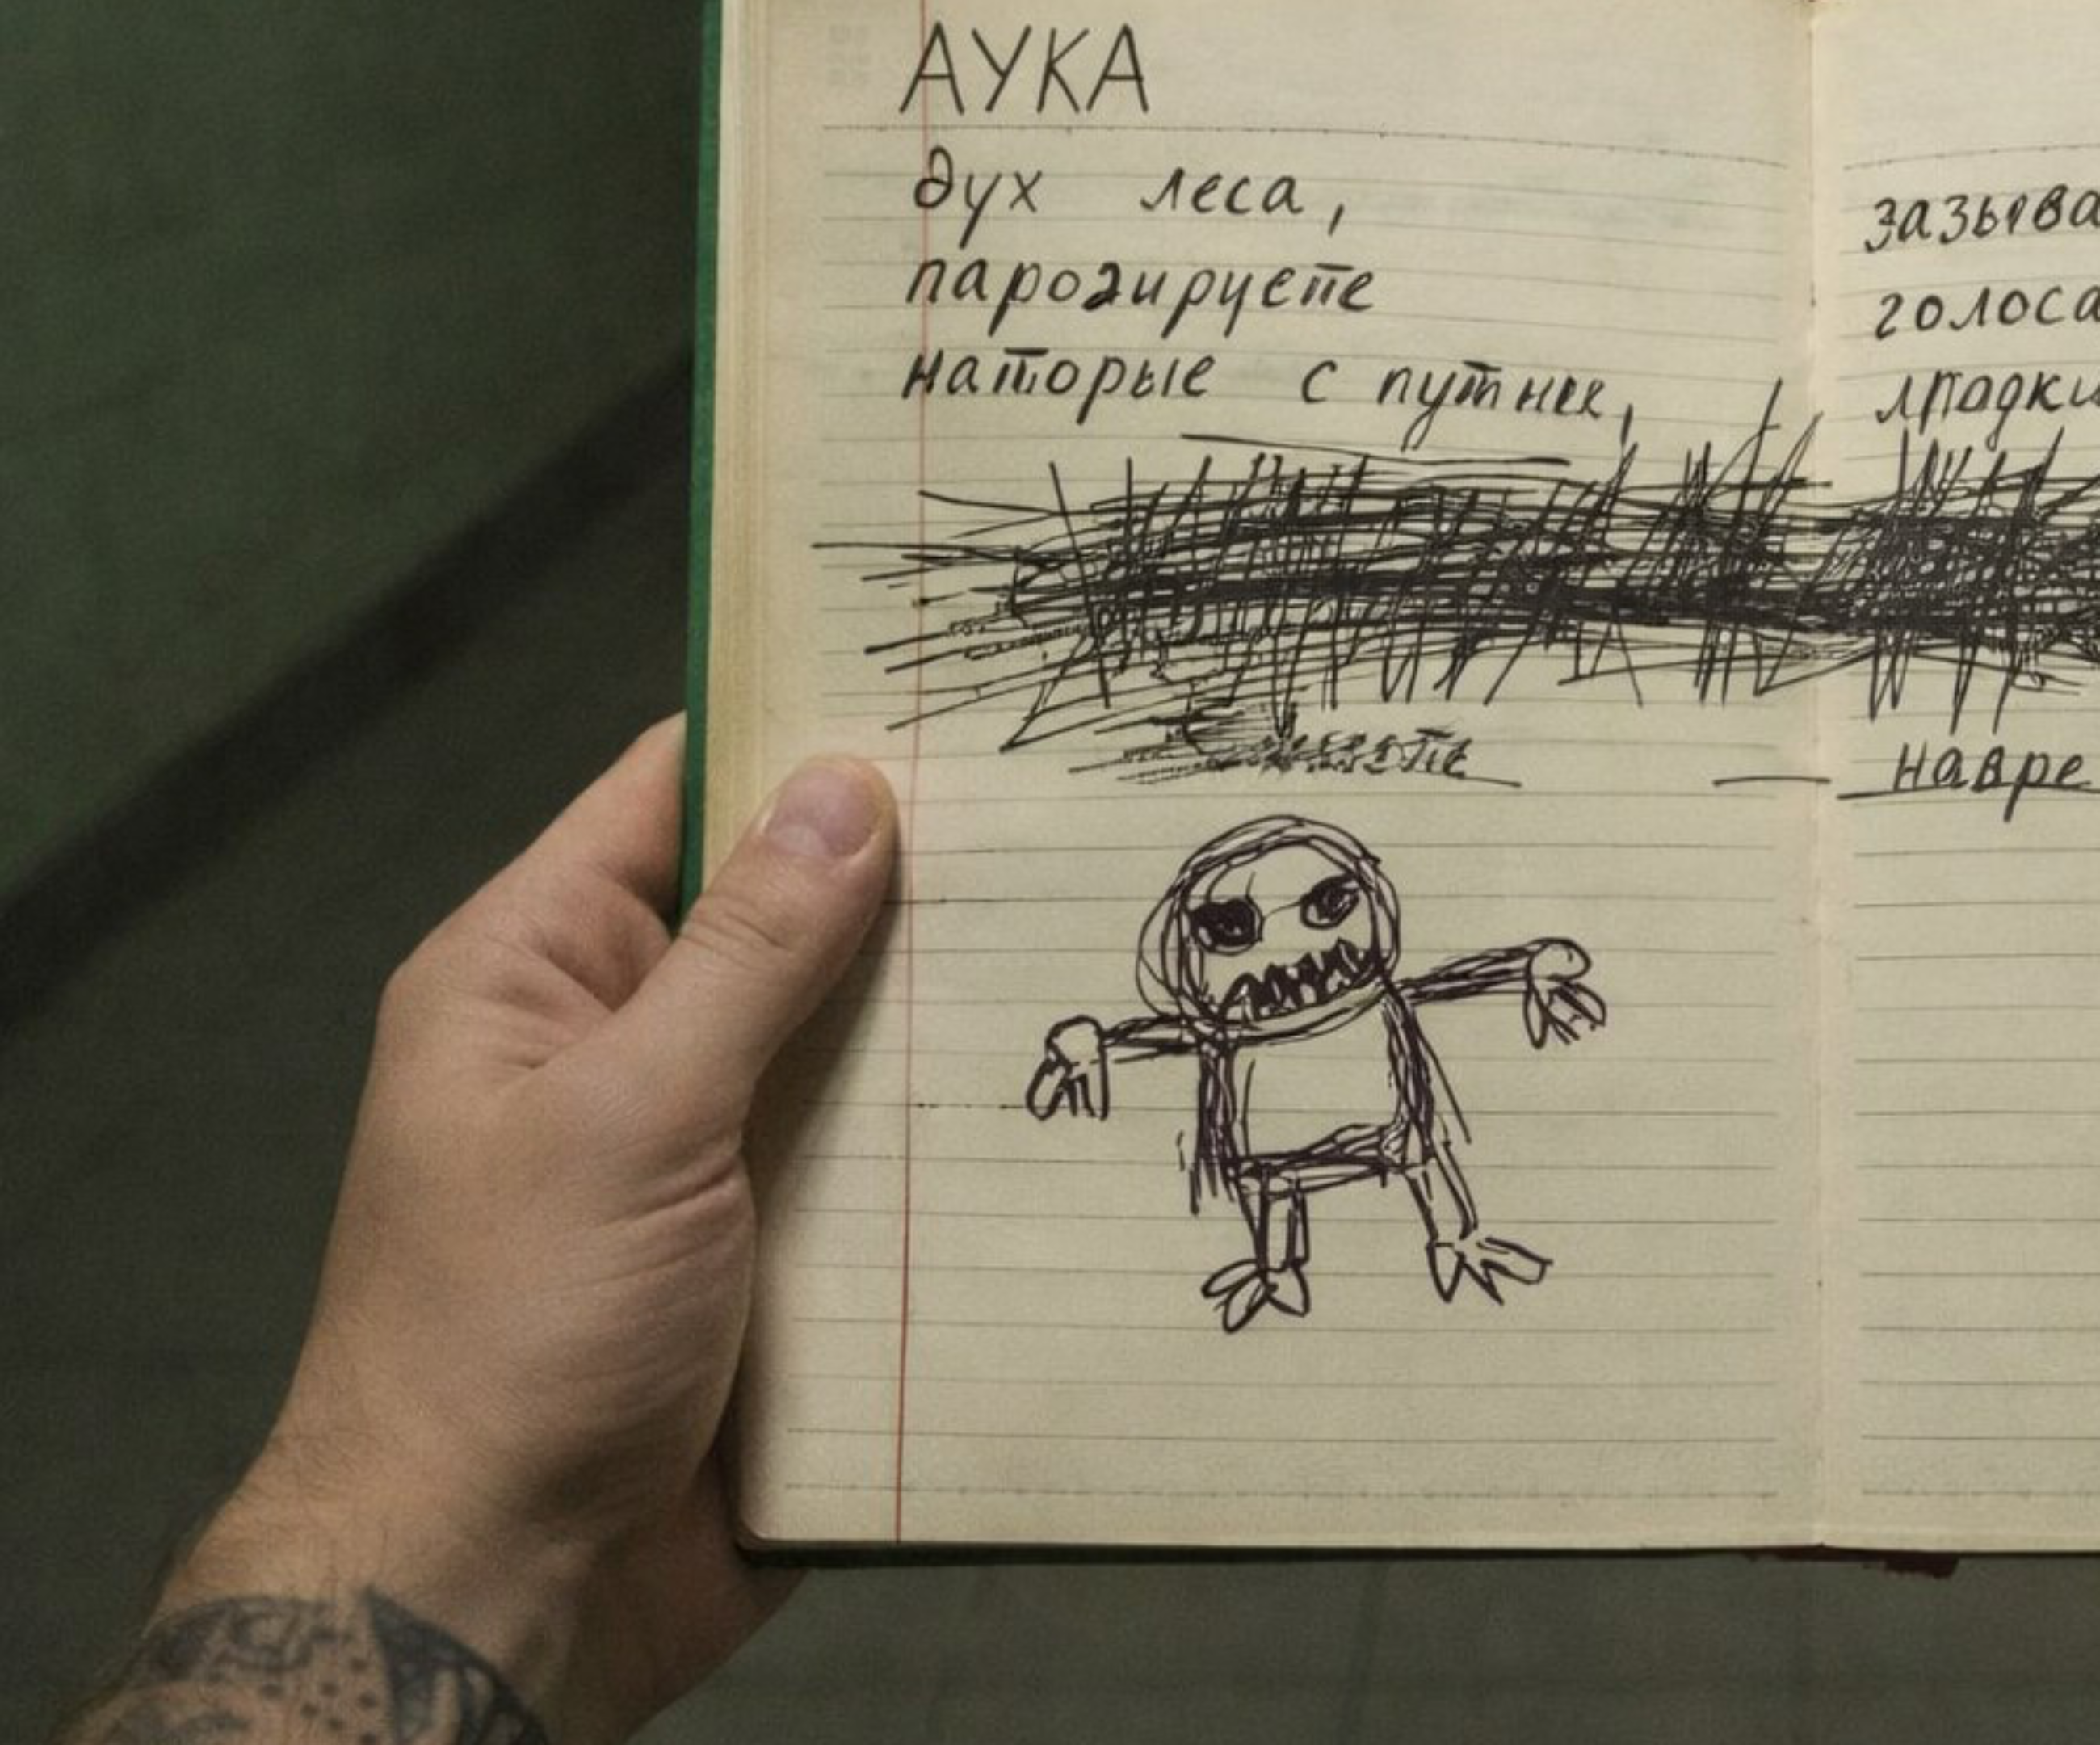 АУКА
дух леса,
пародируете
наторые с путник,
зазыва
голоса
навре